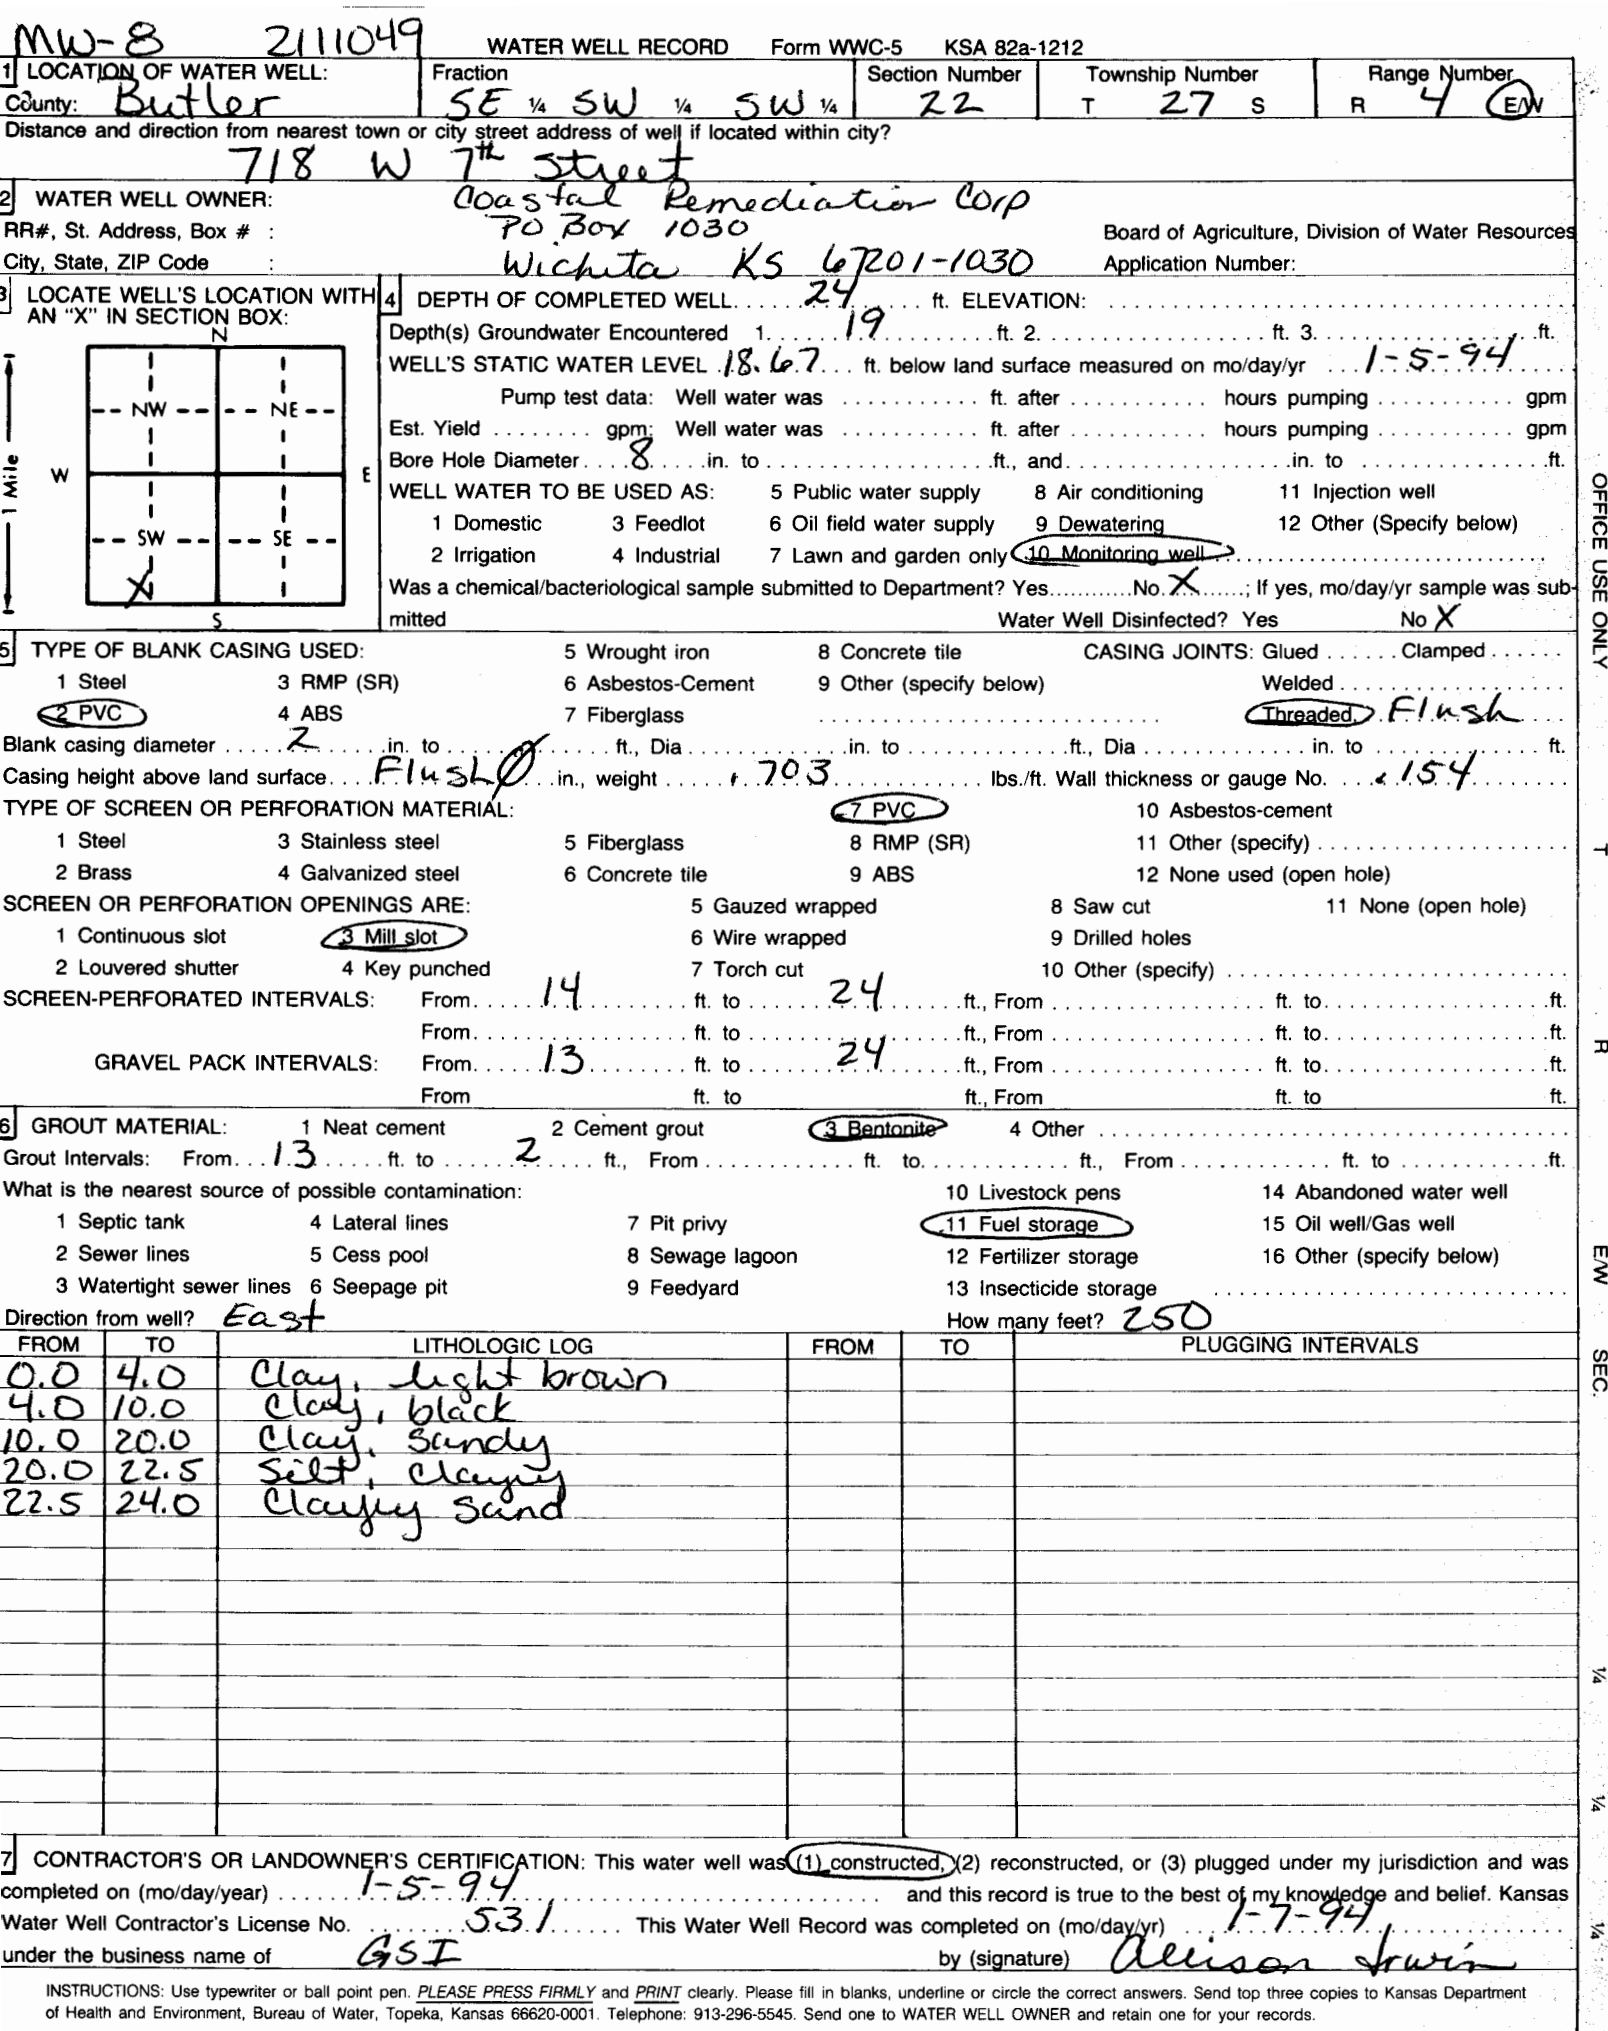 MW-8 2111049 WATER WELL RECORD Form WWC-5 KSA 82a-1212
1 LOCATION OF WATER WELL: Fraction Section Number Township Number Range Number
County: Butler SE ¼ SW ¼ SW ¼ 22 T 27 S R 4 E/W
Distance and direction from nearest town or city street address of well if located within city?
718 W 7th Street
2 WATER WELL OWNER: Coastal Remediation Corp
RR#, St. Address, Box # : PO Box 1030 Board of Agriculture, Division of Water Resources
City, State, ZIP Code : Wichita KS 67201-1030 Application Number:
3 LOCATE WELL'S LOCATION WITH
AN "X" IN SECTION BOX:
N
NW NE
W E
1 Mile
SW SE
X
S
4 DEPTH OF COMPLETED WELL 24 ft. ELEVATION:
Depth(s) Groundwater Encountered 1. 19 ft. 2. ft. 3. ft.
WELL'S STATIC WATER LEVEL 18.67 ft. below land surface measured on mo/day/yr 1-5-94
Pump test data: Well water was ft. after hours pumping gpm
Est. Yield gpm: Well water was ft. after hours pumping gpm
Bore Hole Diameter 8 in. to ft., and in. to ft.
WELL WATER TO BE USED AS: 5 Public water supply 8 Air conditioning 11 Injection well
1 Domestic 3 Feedlot 6 Oil field water supply 9 Dewatering 12 Other (Specify below)
2 Irrigation 4 Industrial 7 Lawn and garden only 10 Monitoring well
Was a chemical/bacteriological sample submitted to Department? Yes No X ; If yes, mo/day/yr sample was sub-
mitted Water Well Disinfected? Yes No X
5 TYPE OF BLANK CASING USED: 5 Wrought iron 8 Concrete tile CASING JOINTS: Glued Clamped
1 Steel 3 RMP (SR) 6 Asbestos-Cement 9 Other (specify below) Welded
2 PVC 4 ABS 7 Fiberglass Threaded Flush
Blank casing diameter 2 in. to ft., Dia in. to ft., Dia in. to ft.
Casing height above land surface Flush 0 in., weight .703 lbs./ft. Wall thickness or gauge No. .154
TYPE OF SCREEN OR PERFORATION MATERIAL: 7 PVC 10 Asbestos-cement
1 Steel 3 Stainless steel 5 Fiberglass 8 RMP (SR) 11 Other (specify)
2 Brass 4 Galvanized steel 6 Concrete tile 9 ABS 12 None used (open hole)
SCREEN OR PERFORATION OPENINGS ARE: 5 Gauzed wrapped 8 Saw cut 11 None (open hole)
1 Continuous slot 3 Mill slot 6 Wire wrapped 9 Drilled holes
2 Louvered shutter 4 Key punched 7 Torch cut 10 Other (specify)
SCREEN-PERFORATED INTERVALS: From 14 ft. to 24 ft., From ft. to ft.
From ft. to ft., From ft. to ft.
GRAVEL PACK INTERVALS: From 13 ft. to 24 ft., From ft. to ft.
From ft. to ft., From ft. to ft.
6 GROUT MATERIAL: 1 Neat cement 2 Cement grout 3 Bentonite 4 Other
Grout Intervals: From 13 ft. to 2 ft., From ft. to ft., From ft. to ft.
What is the nearest source of possible contamination: 10 Livestock pens 14 Abandoned water well
1 Septic tank 4 Lateral lines 7 Pit privy 11 Fuel storage 15 Oil well/Gas well
2 Sewer lines 5 Cess pool 8 Sewage lagoon 12 Fertilizer storage 16 Other (specify below)
3 Watertight sewer lines 6 Seepage pit 9 Feedyard 13 Insecticide storage
Direction from well? East How many feet? 250
FROM TO LITHOLOGIC LOG FROM TO PLUGGING INTERVALS
0.0 4.0 Clay, light brown
4.0 10.0 Clay, black
10.0 20.0 Clay, Sandy
20.0 22.5 Silt, Clayey
22.5 24.0 Clayey Sand
7 CONTRACTOR'S OR LANDOWNER'S CERTIFICATION: This water well was (1) constructed, (2) reconstructed, or (3) plugged under my jurisdiction and was
completed on (mo/day/year) 1-5-94 and this record is true to the best of my knowledge and belief. Kansas
Water Well Contractor's License No. 531 This Water Well Record was completed on (mo/day/yr) 1-7-94
under the business name of GSI by (signature) Allison Irwin
INSTRUCTIONS: Use typewriter or ball point pen. PLEASE PRESS FIRMLY and PRINT clearly. Please fill in blanks, underline or circle the correct answers. Send top three copies to Kansas Department
of Health and Environment, Bureau of Water, Topeka, Kansas 66620-0001. Telephone: 913-296-5545. Send one to WATER WELL OWNER and retain one for your records.
OFFICE USE ONLY
T
R
E/W
SEC.
¼
¼
¼